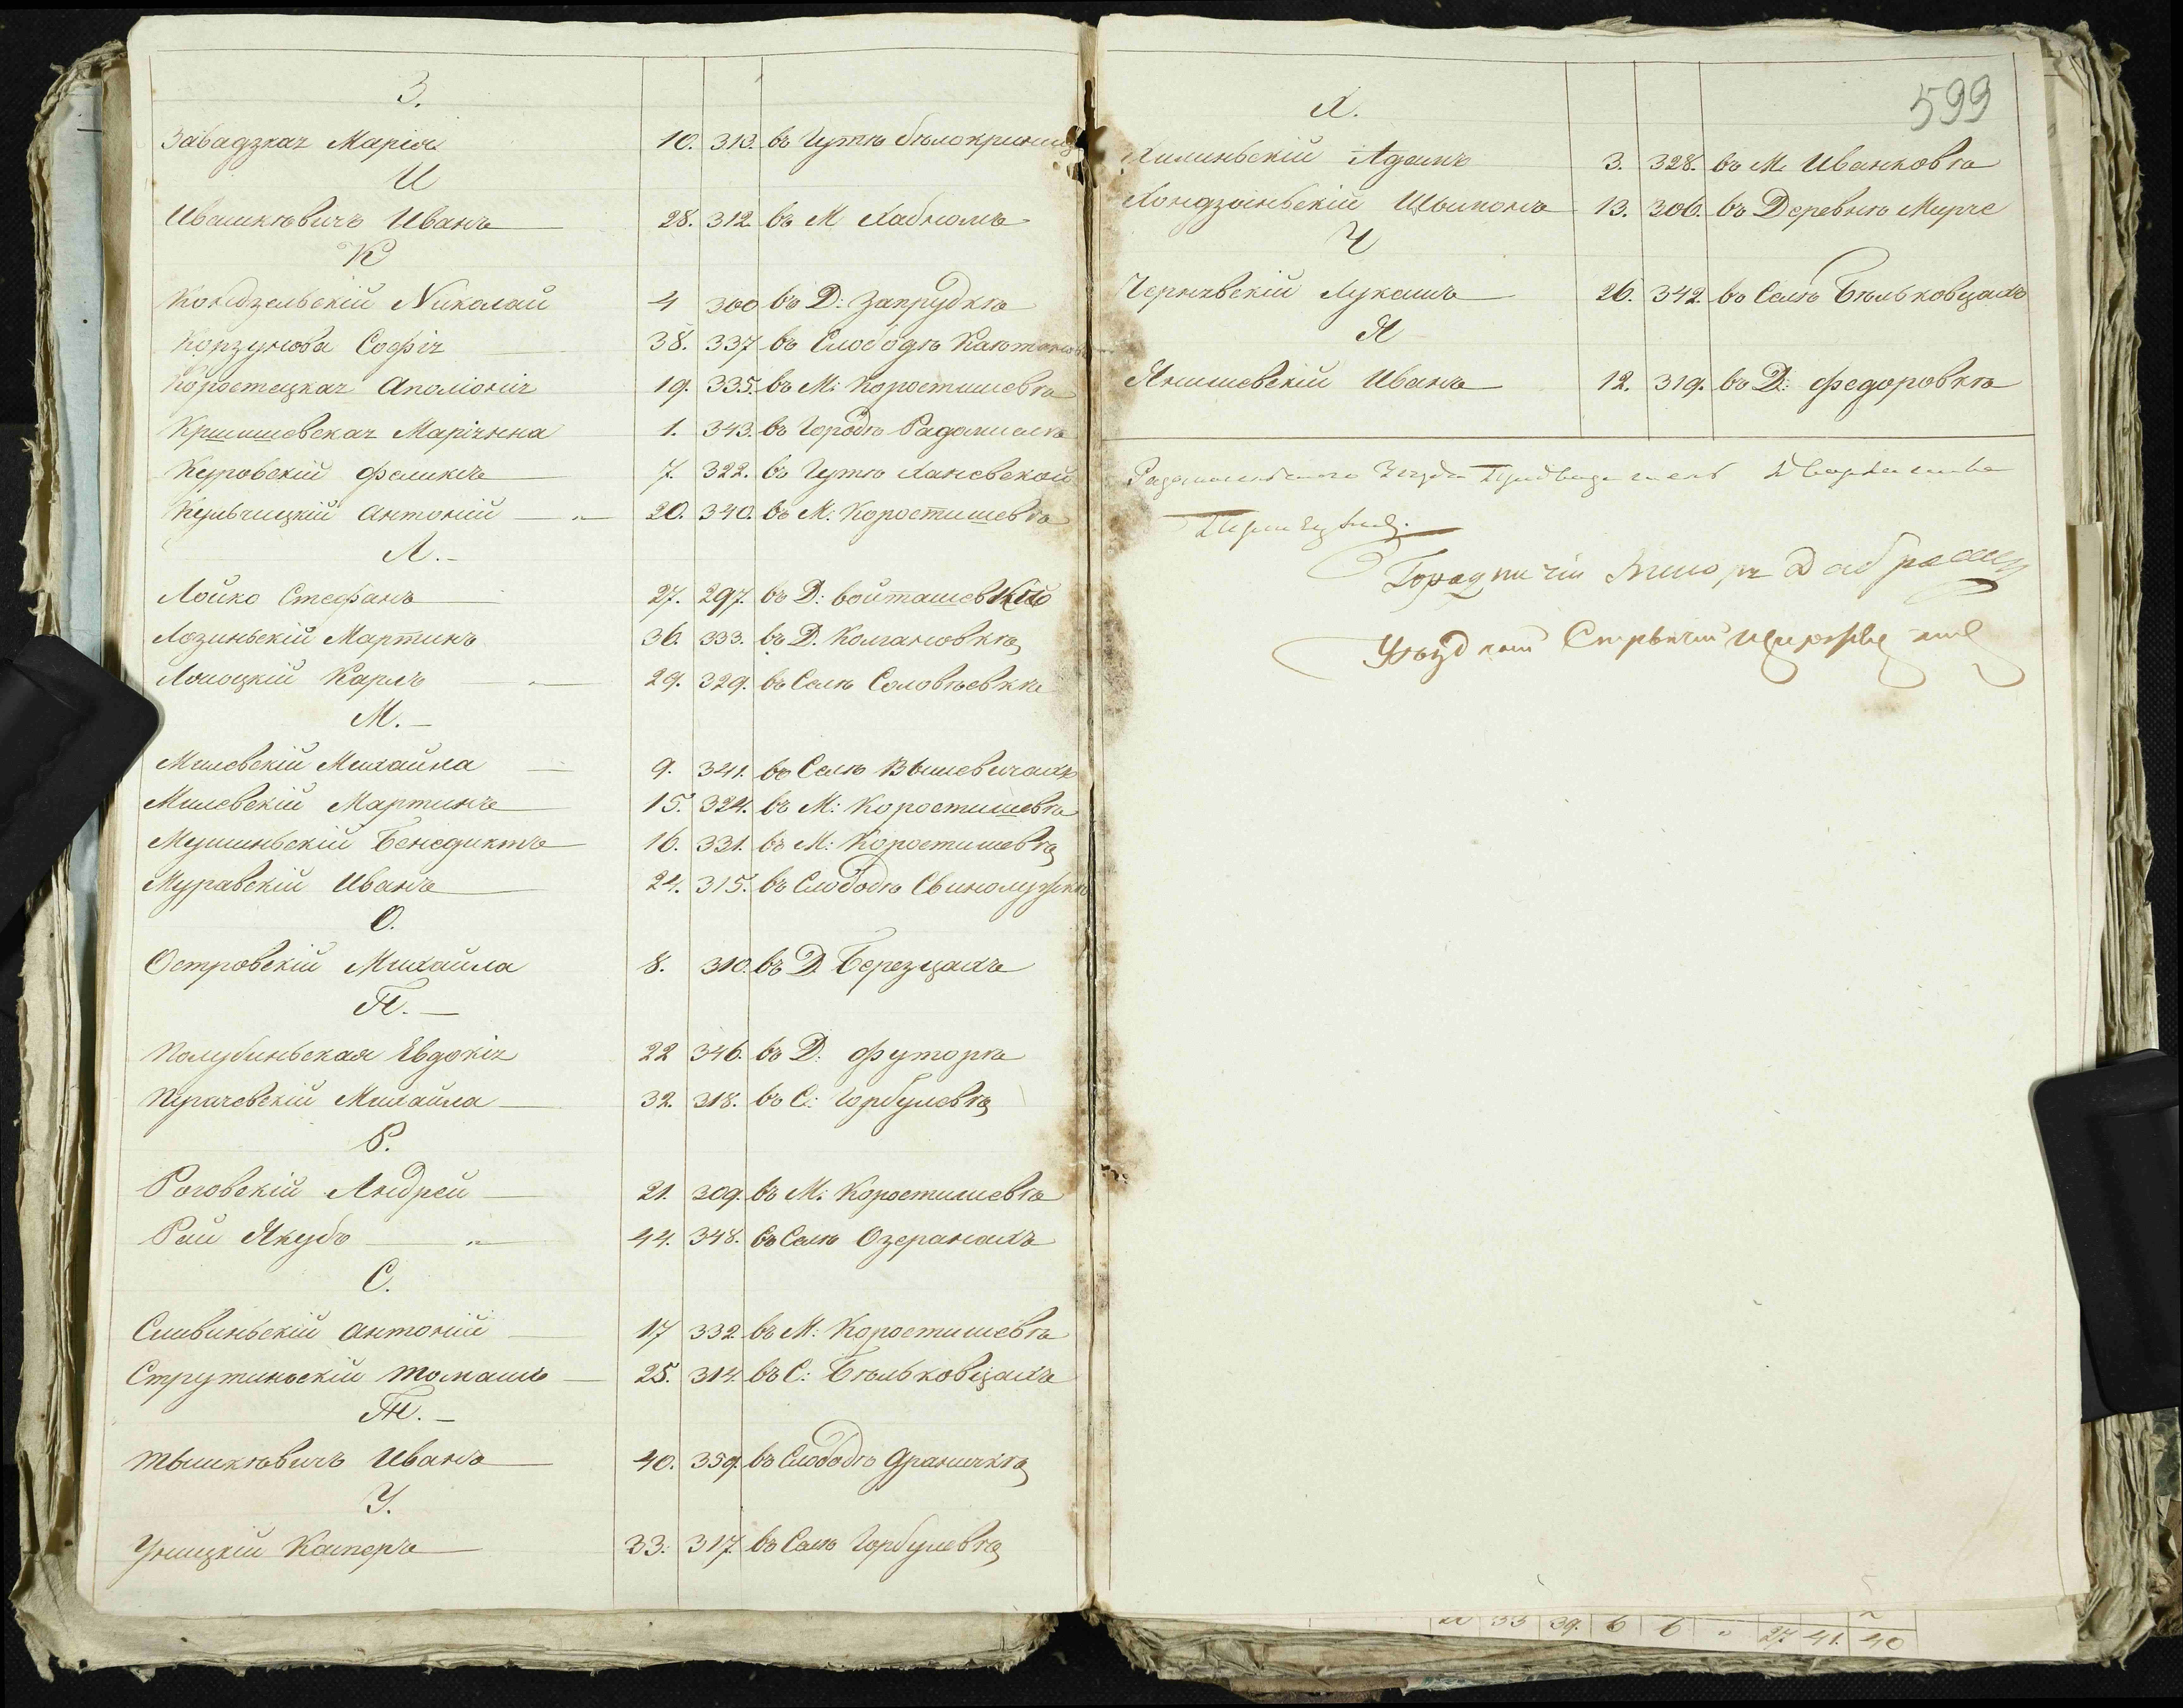 З.
Завадзкая Марія 10. 313. въ Гутѣ бѣлокриниц
И
Ивашкѣвичъ Иванъ 28. 312. въ М Хабномъ
К
Кондзельскій Николай 4 300 въ Д: Запрудкѣ
Корзунова Софія 38. 337 въ Слободѣ
Коростецкая Аполіонія 19. 335. въ М: Коростишевѣ
Кршишевская Маріянна 1. 343. въ Городѣ Радомислѣ
Куровскій Феликсъ 7. 322. въ Гутѣ Ханевской
Кульчицкій Антоній 20. 340. въ М. Коростишевѣ
Л.
Лойко Стефанъ 27. 297. въ Д: войташевкѣ
Лозиньскій Мартинъ 36. 333. въ Д. Колгановкѣ
Лонцкій Карлъ 29. 329. въ Селѣ Соловѣевкѣ
М.
Милевскій Михайла 9. 341. въ Селѣ Вышевичахъ
Милевскій Мартинъ 15. 324. въ М: Коростишевѣ
Мушиньскій Бенедиктъ 16. 331. въ М: Коростишевѣ
Муравскій Иванъ 24. 315. въ Слободѣ Свинолужкѣ
О.
Островскій Михайла 8. 310. въ Д. Березцахъ
П.
Полубиньская Евдокія 22 346. въ Д: футорѣ
Прачевскій Михайла 32. 318. въ С: Горбулевѣ
Р.
Роговскій Андрей 21. 309. въ М: Коростишевѣ
Рай Якубъ 44. 348. въ Селѣ Озеранахъ
С.
Сливиньскій Антоній 17 332 въ М: Коростишевѣ
Струтиньскій Томашъ 25. 314. въ С: Бѣльковцахъ
Т.
Тышкѣвичъ Иванъ 40. 339. въ Слободѣ Драничкѣ
У.
Уницкій Касперъ 33. 317. въ Селѣ Горбулевѣ
599
Х.
Хилиньскій Адамъ 3. 328. въ М. Иванковѣ
Хондзиньскій Шымонъ 13. 306. въ Деревнѣ Мирче
Ч
Чернявскій Лукашъ 26. 342. въ Селѣ Бѣльковцахъ
Я
Янишевскій Иванъ 12. 319. въ Д: Федоровкѣ
Радомысльскаго Уезда Предводитель Дворянства
Городничій Маіоръ
Уѣздный Стряпчій
33 39. 6 6 " 27 41. 40